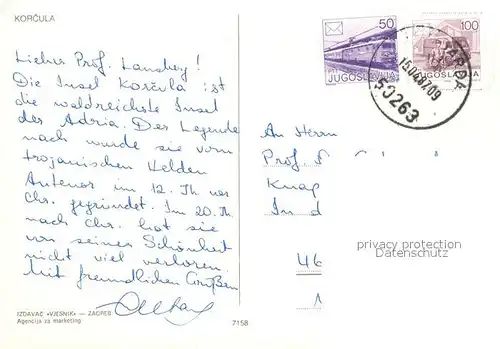 KORČULA
Lieber Prof. Lansberg!
Die Insel Korčula ist
die waldreichste Insel
der Adria. Der Legende
nach wurde sie vom
trojanischen Helden
Antenor im 12. Jh vor
Chr. gegründet. Im 20. Jh
nach Chr. hat sie
von seiner Schönheit
nicht viel verloren.
Mit freundlichen Grüßen
IZDAVAČ «VJESNIK» — ZAGREB
Agencija za marketing
7158
50
PTT
JUGOSLAVIJA
100
JUGOSLAVIJA
15.04.87.09
50263
An Herrn
Prof.
Knap
In d
46
privacy protection
Datenschutz